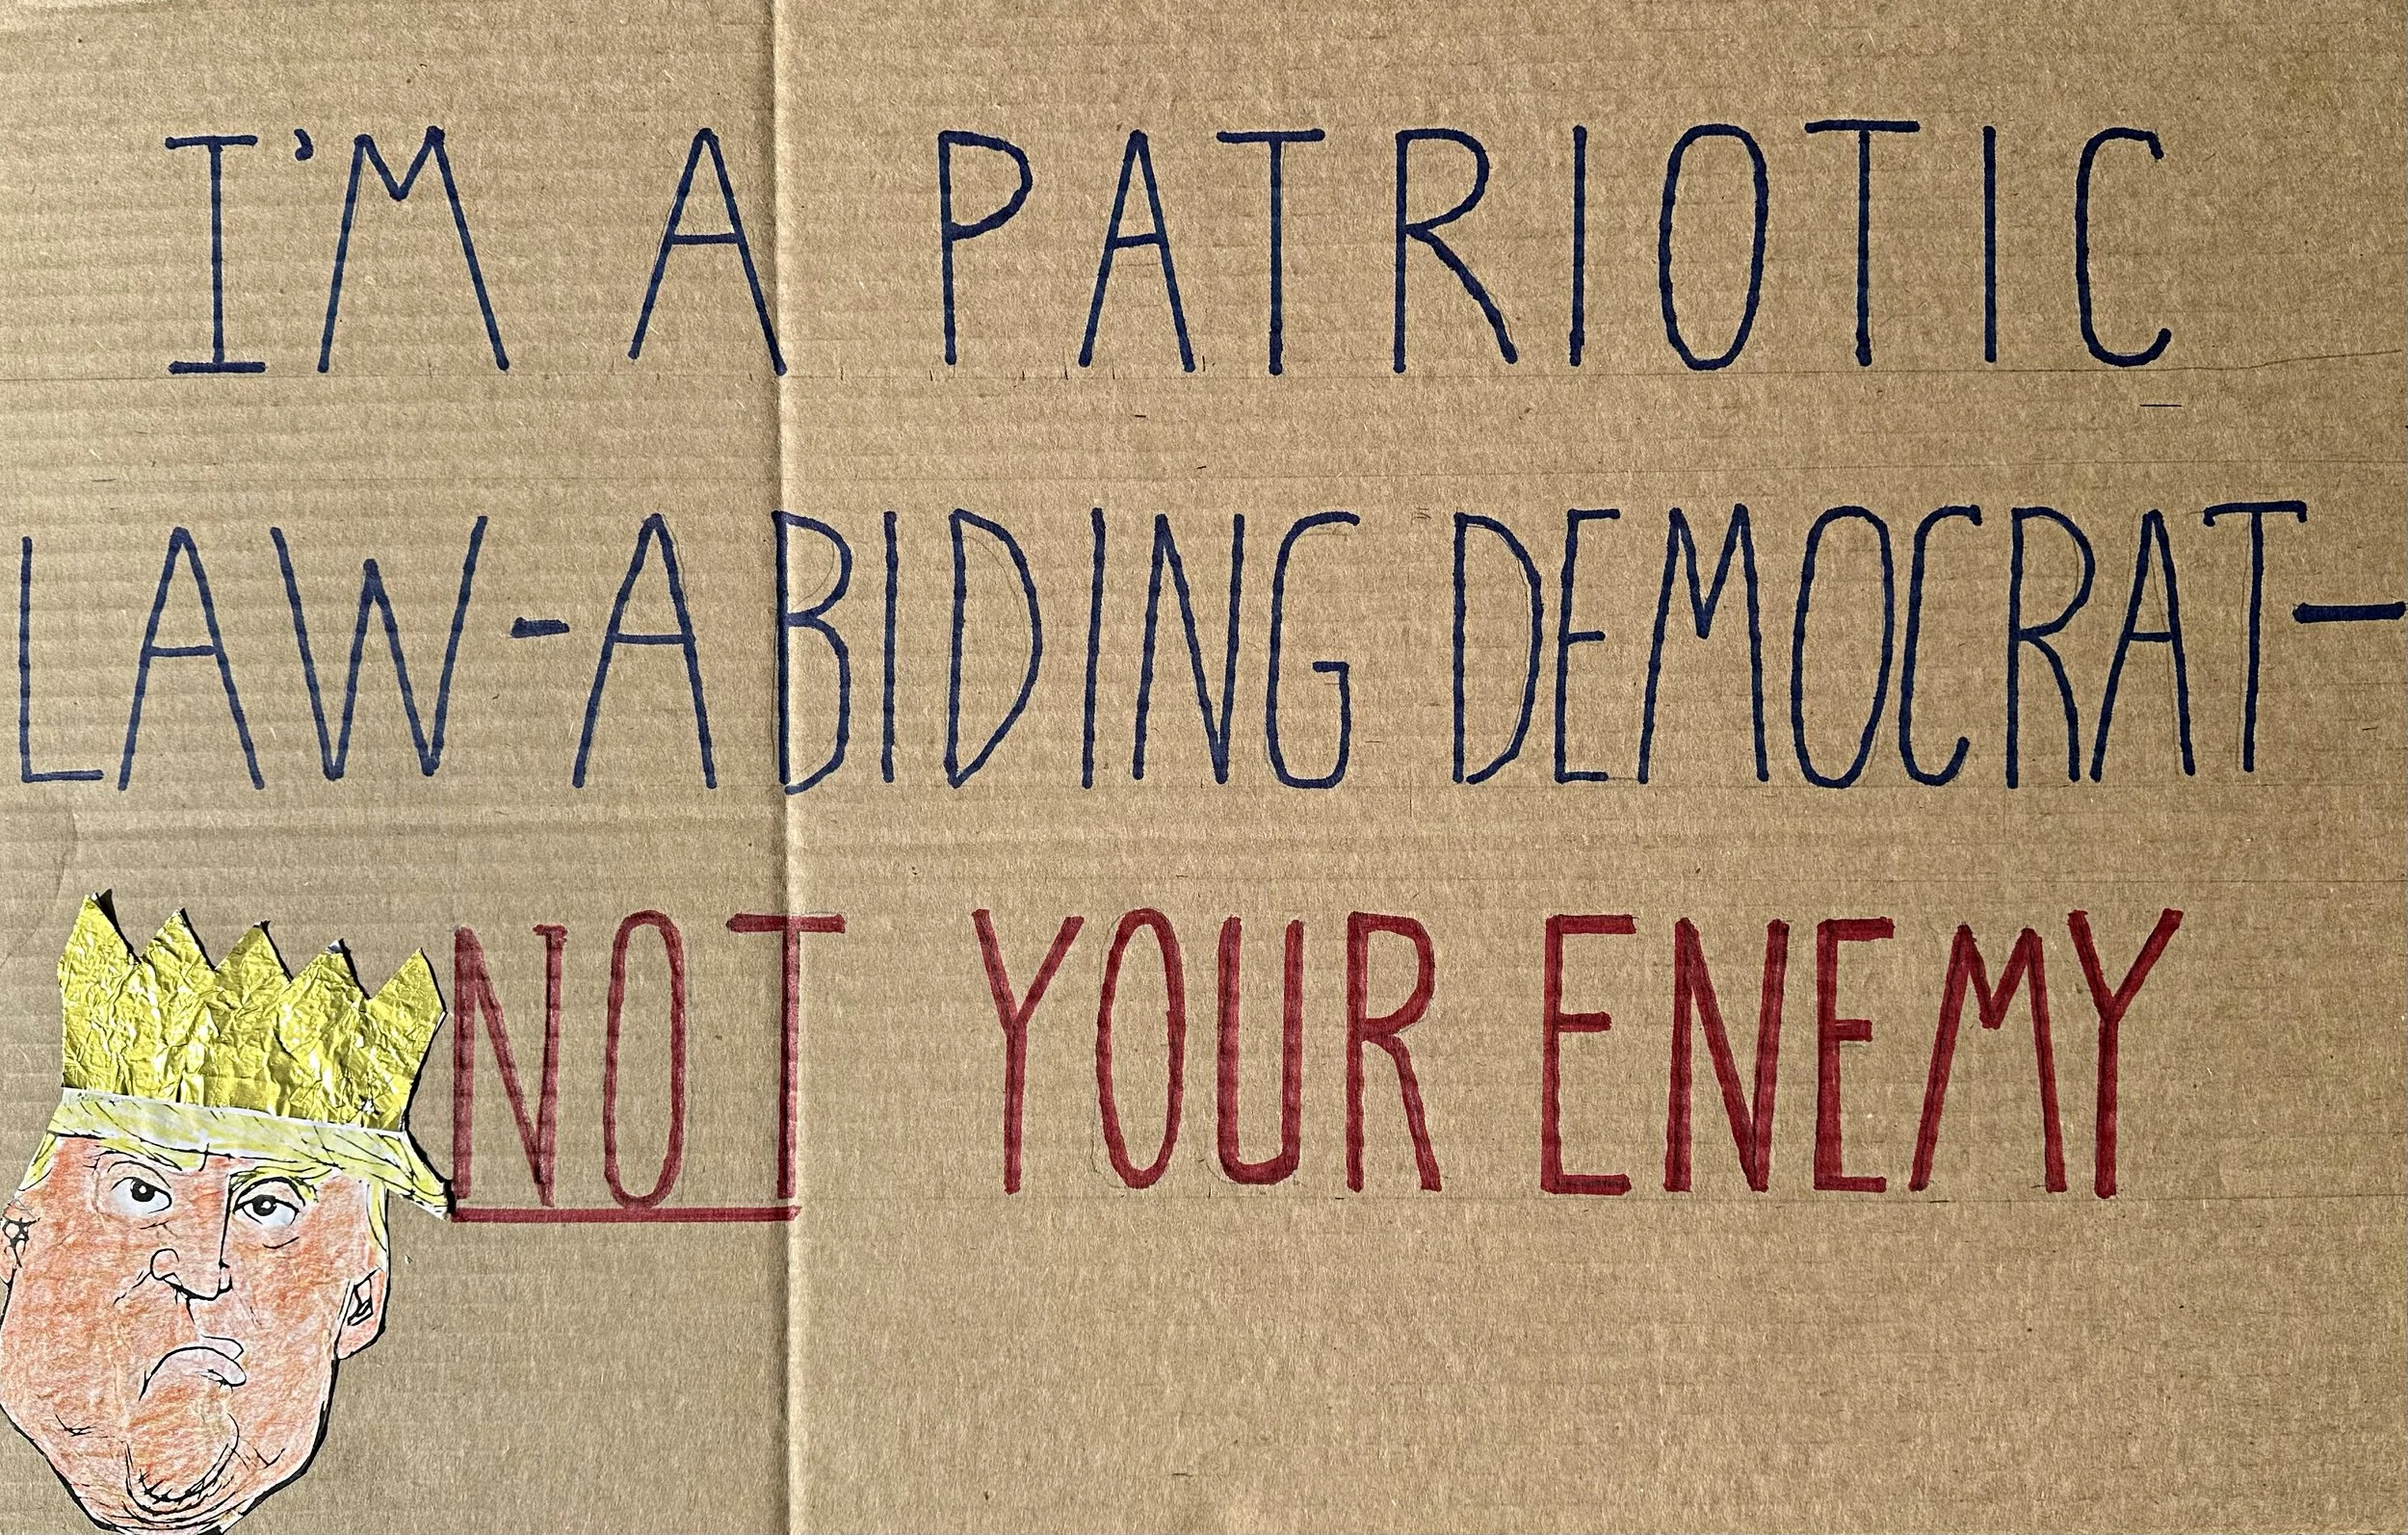 I'M A PATRIOTIC
LAW-ABIDING DEMOCRAT-
NOT YOUR ENEMY